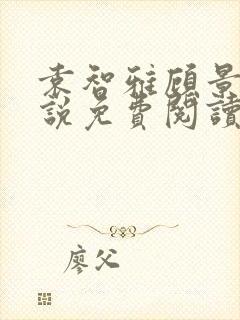 袁智雅顾景
說免費閱讀
廖父